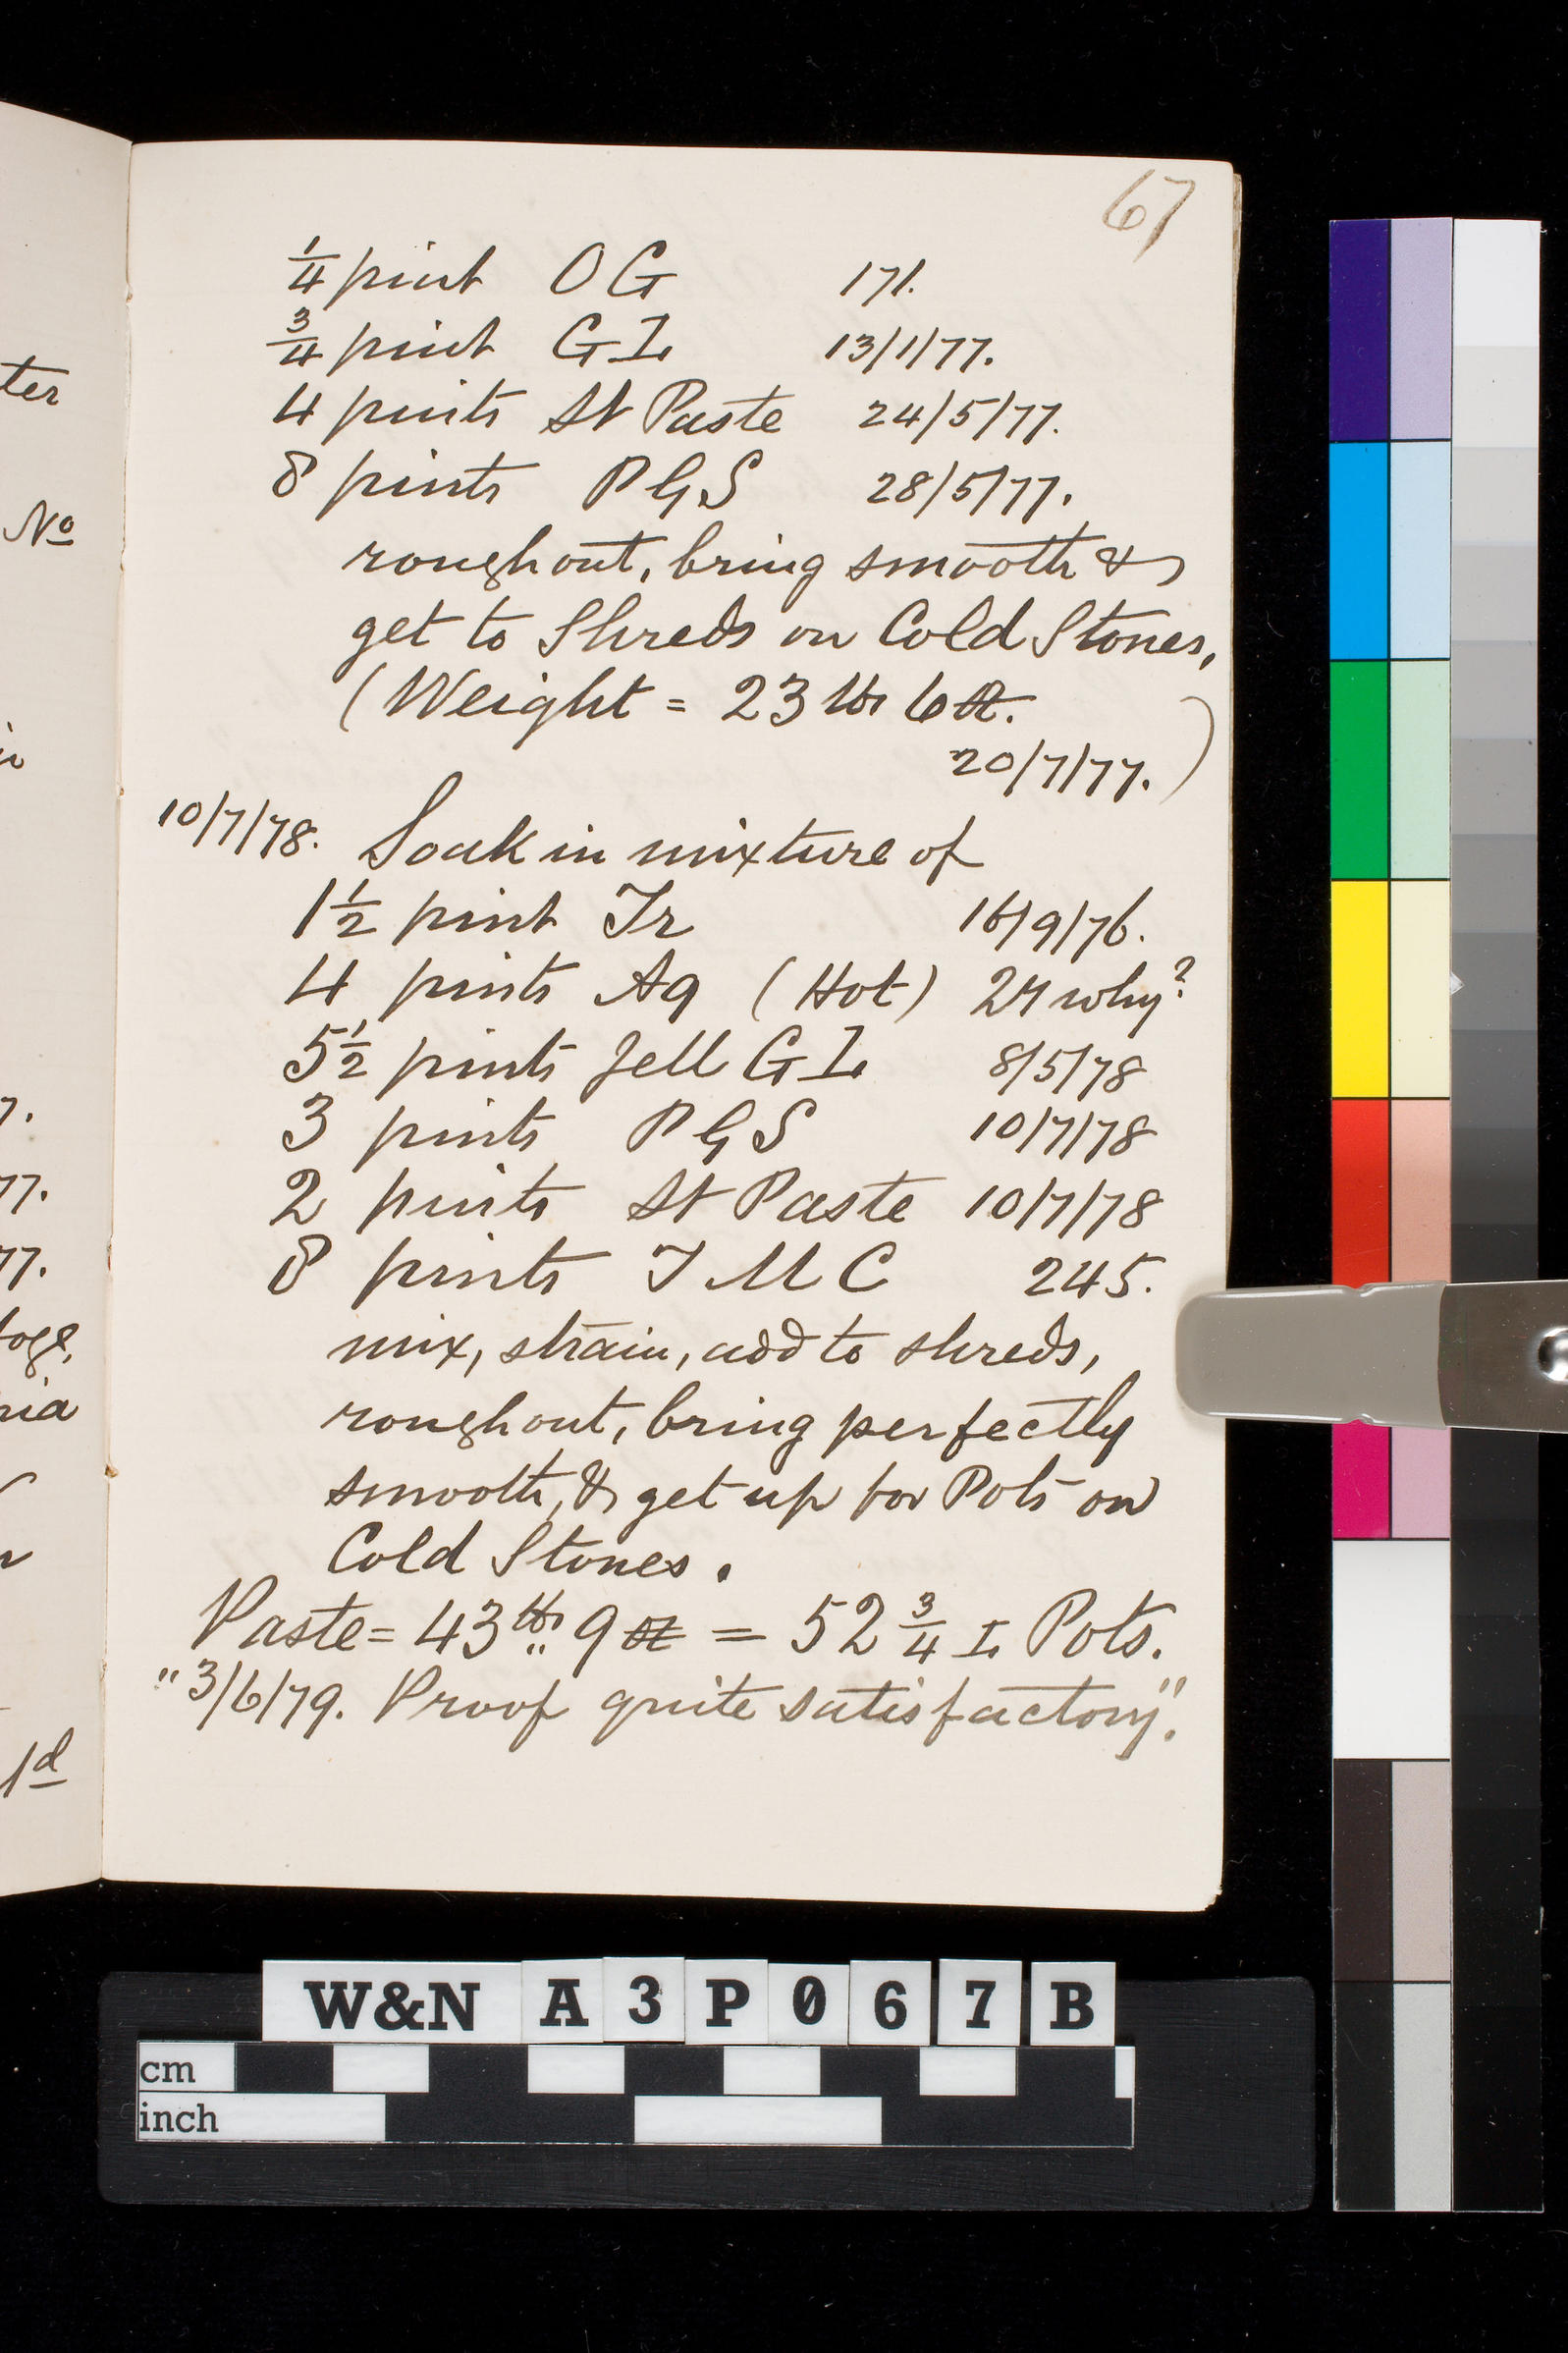 67
1/4 pint OG 171.
3/4 pint GL 13/1/77.
4 pints St Paste 24/5/77.
8 pints PGS 28/5/77.
rough out, bring smooth &
get to Shreds on Cold Stones,
(Weight = 23 lbs 6 oz.
20/7/77.)
10/7/78. Soak in mixture of
1 1/2 pint Tr 16/9/76.
4 pints Aq (Hot) 24 why?
5 1/2 pints Jell GL 8/5/78
3 pints PGS 10/7/78
2 pints St Paste 10/7/78
8 pints TMC 245.
mix, strain, add to shreds,
rough out, bring perfectly
smooth, & get up for Pots on
Cold Stones.
Paste = 43 lbs,, 9 oz = 52 3/4 L Pots.
"3/6/79. Proof quite satisfactory".
ter
No
7.
77.
77.
1d
W&N A3P067B
cm
inch